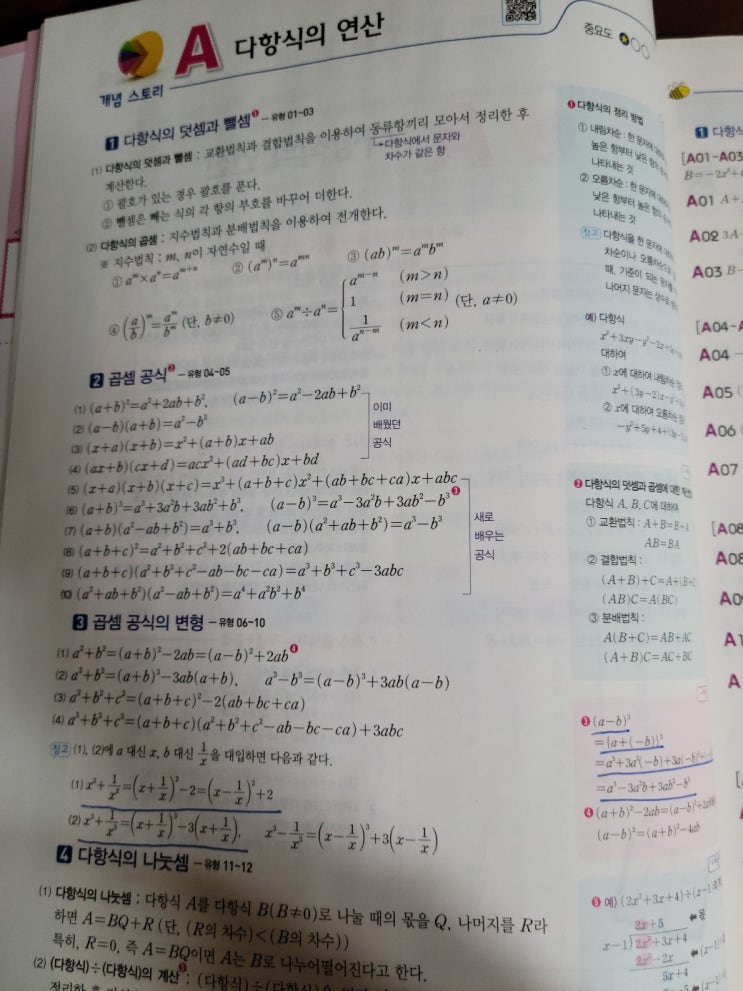 A 다항식의 연산
중요도
개념 스토리
1 다항식의 덧셈과 뺄셈❶ – 유형 01~03
(1) 다항식의 덧셈과 뺄셈 : 교환법칙과 결합법칙을 이용하여 동류항끼리 모아서 정리한 후
계산한다.
다항식에서 문자와
차수가 같은 항
① 괄호가 있는 경우 괄호를 푼다.
② 뺄셈은 빼는 식의 각 항의 부호를 바꾸어 더한다.
(2) 다항식의 곱셈 : 지수법칙과 분배법칙을 이용하여 전개한다.
※ 지수법칙 : m, n이 자연수일 때
① aᵐ×aⁿ=aᵐ⁺ⁿ ② (aᵐ)ⁿ=aᵐⁿ ③ (ab)ᵐ=aᵐbᵐ
④ (a/b)ᵐ=aᵐ/bᵐ (단, b≠0) ⑤ aᵐ÷aⁿ= { aᵐ⁻ⁿ (m>n)
1 (m=n) (단, a≠0)
1/aⁿ⁻ᵐ (m<n)
2 곱셈 공식❷ – 유형 04~05
(1) (a+b)²=a²+2ab+b², (a-b)²=a²-2ab+b²
(2) (a-b)(a+b)=a²-b²
(3) (x+a)(x+b)=x²+(a+b)x+ab
(4) (ax+b)(cx+d)=acx²+(ad+bc)x+bd
이미
배웠던
공식
(5) (x+a)(x+b)(x+c)=x³+(a+b+c)x²+(ab+bc+ca)x+abc
(6) (a+b)³=a³+3a²b+3ab²+b³, (a-b)³=a³-3a²b+3ab²-b³❸
(7) (a+b)(a²-ab+b²)=a³+b³, (a-b)(a²+ab+b²)=a³-b³
(8) (a+b+c)²=a²+b²+c²+2(ab+bc+ca)
(9) (a+b+c)(a²+b²+c²-ab-bc-ca)=a³+b³+c³-3abc
(10) (a²+ab+b²)(a²-ab+b²)=a⁴+a²b²+b⁴
새로
배우는
공식
3 곱셈 공식의 변형 – 유형 06~10
(1) a²+b²=(a+b)²-2ab=(a-b)²+2ab❹
(2) a³+b³=(a+b)³-3ab(a+b), a³-b³=(a-b)³+3ab(a-b)
(3) a²+b²+c²=(a+b+c)²-2(ab+bc+ca)
(4) a³+b³+c³=(a+b+c)(a²+b²+c²-ab-bc-ca)+3abc
참고 (1), (2)에 a 대신 x, b 대신 1/x을 대입하면 다음과 같다.
(1) x²+1/x²=(x+1/x)²-2=(x-1/x)²+2
(2) x³+1/x³=(x+1/x)³-3(x+1/x), x³-1/x³=(x-1/x)³+3(x-1/x)
4 다항식의 나눗셈 – 유형 11~12
(1) 다항식의 나눗셈 : 다항식 A를 다항식 B(B≠0)로 나눌 때의 몫을 Q, 나머지를 R라
하면 A=BQ+R (단, (R의 차수)<(B의 차수))
특히, R=0, 즉 A=BQ이면 A는 B로 나누어떨어진다고 한다.
(2) (다항식)÷(다항식)의 계산❺ : (다항식)÷(다항식)
❶ 다항식의 정리 방법
① 내림차순 : 한 문자에
높은 항부터 낮은 항의
나타내는 것
② 오름차순 : 한 문자에
낮은 항부터 높은 항의
나타내는 것
참고 다항식을 한 문자에
차순이나 오름차순으로
때, 기준이 되는 문자를
나머지 문자는 상수로
예) 다항식
x²+3xy-y²-2x+5y
대하여
① x에 대하여 내림차순
x²+(3y-2)x-y²
② x에 대하여 오름차순
-y²+5y+4+(3y
❷ 다항식의 덧셈과 곱셈에 대한
다항식 A, B, C에 대하여
① 교환법칙 : A+B=B+A
AB=BA
② 결합법칙 :
(A+B)+C=A+(B+C
(AB)C=A(BC)
③ 분배법칙 :
A(B+C)=AB+AC
(A+B)C=AC+BC
❸ (a-b)³
={a+(-b)}³
=a³+3a²(-b)+3a(-b)²+
=a³-3a²b+3ab²-b³
❹ (a+b)²-2ab=(a-b)²+2ab
(a-b)²=(a+b)²-4ab
❺ 예) (2x²+3x+4)÷(x-1)
2x+5 ← 몫
x-1)2x²+3x+4
2x²-2x
5x+4
1 다항식
[A01~A03
B=-2x²+
A01 A+
A02 3A
A03 B-
[A04~
A04
A05 (
A06 (
A07
[A08
A08
A09
A1